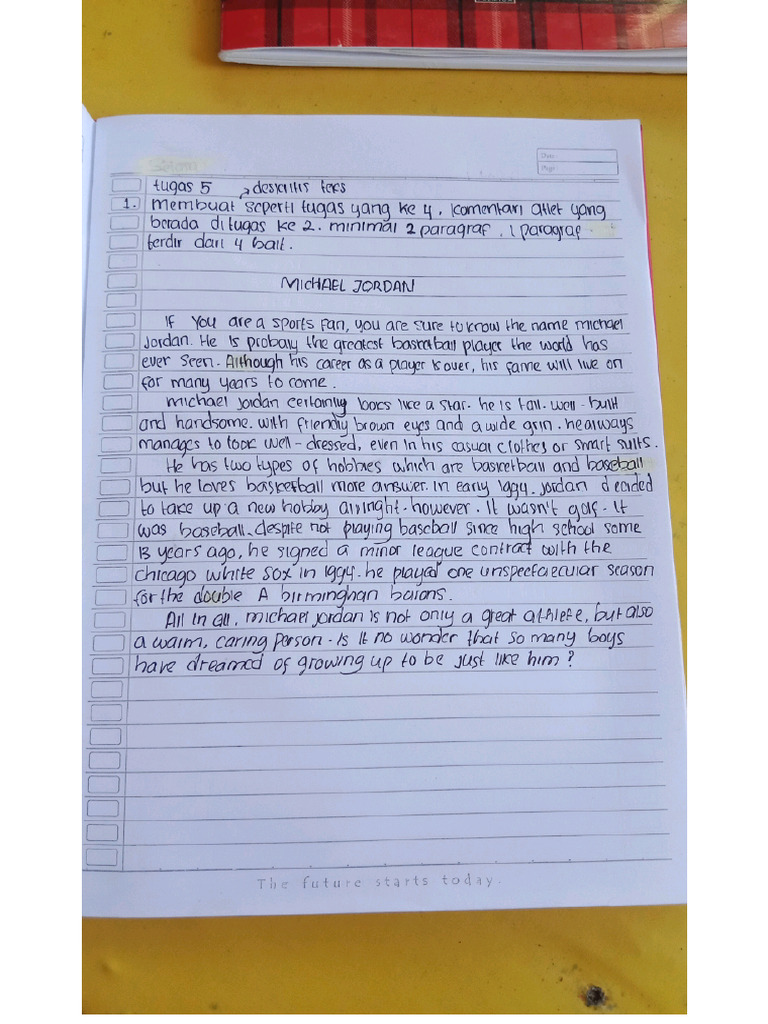 Date:
Page:
tugas 5 → deskritis teks
1. membuat seperti tugas yang ke 4. komentari atlet yang
berada di tugas ke 2. minimal 2 paragraf, 1 paragraf
terdir dari 4 bait.
MICHAEL JORDAN
If you are a sports fan, you are sure to know the name michael
Jordan. He is probaly the greatest basketball player the world has
ever seen. Although his career as a player is over, his fame will live on
for many years to come.
michael Jordan certainly looks like a star. he is tall. well - built
and handsome. with friendly brown eyes and a wide grin. he always
manages to look well - dressed, even in his casual clothes or smart suits.
He has two types of hobbies which are basketball and baseball
but he loves basketball more answer. in early 1994. Jordan decided
to take up a new hobby alright. however. it wasn't golf. it
was baseball. despite not playing baseball since high school some
13 years ago, he signed a minor league contract with the
chicago white sox in 1994. he played one unspectaecular season
for the double A birminghan barons.
All in all, michael jordan is not only a great athlete, but also
a warm, caring person. Is it no wonder that so many boys
have dreamed of growing up to be just like him?
The future starts today.